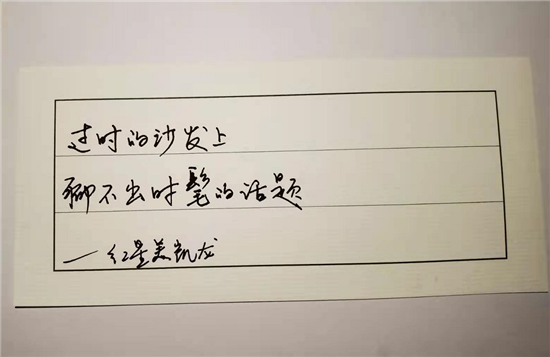 过时的沙发上
聊不出时髦的话题
—红星美凯龙